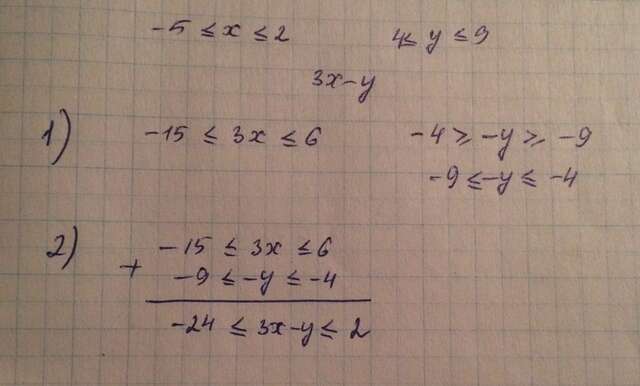 -5 ≤ x ≤ 2 4 ≤ y ≤ 9
3x-y
1) -15 ≤ 3x ≤ 6 -4 ≥ -y ≥ -9
-9 ≤ -y ≤ -4
2) -15 ≤ 3x ≤ 6
+ -9 ≤ -y ≤ -4
-24 ≤ 3x-y ≤ 2